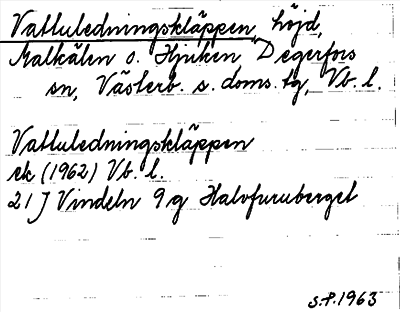 Vattuledningskläppen, höjd,
Malkälen o. Hjuken, Degerfors
sn, Västerb. s. doms. tg, Vb. l.
Vattuledningskläppen
ek (1962) Vb. l.
21 J Vindeln 9 g Halvfuruberget
S.P. 1963